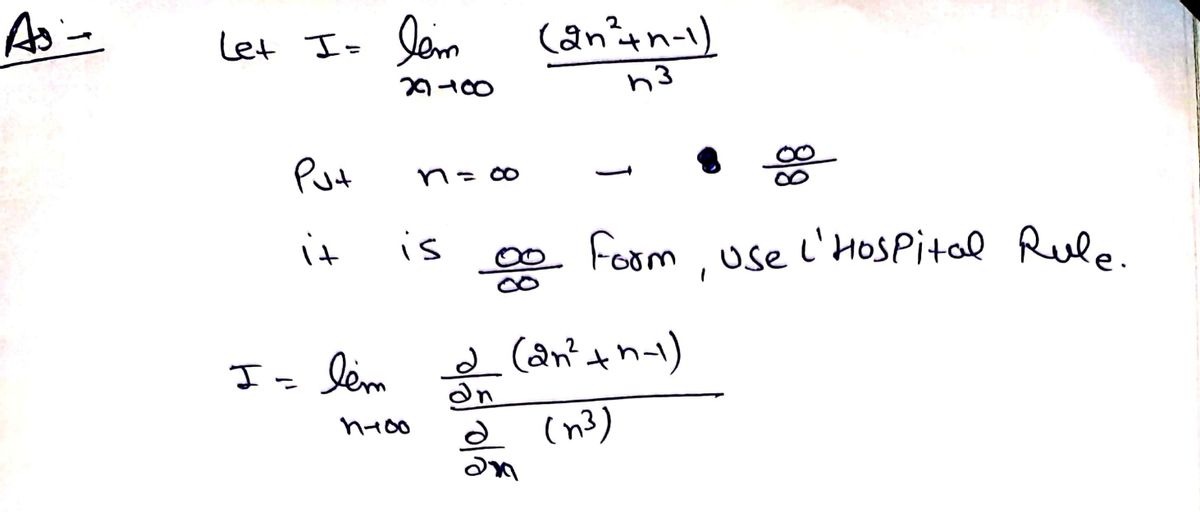 As:-
Let I = lim (2n²+n-1)
n→∞ n³
Put n = ∞ - ∞/∞
it is ∞/∞ form, use L'Hospital Rule.
I = lim ∂/∂n (2n²+n-1)
n→∞ ∂/∂n (n³)